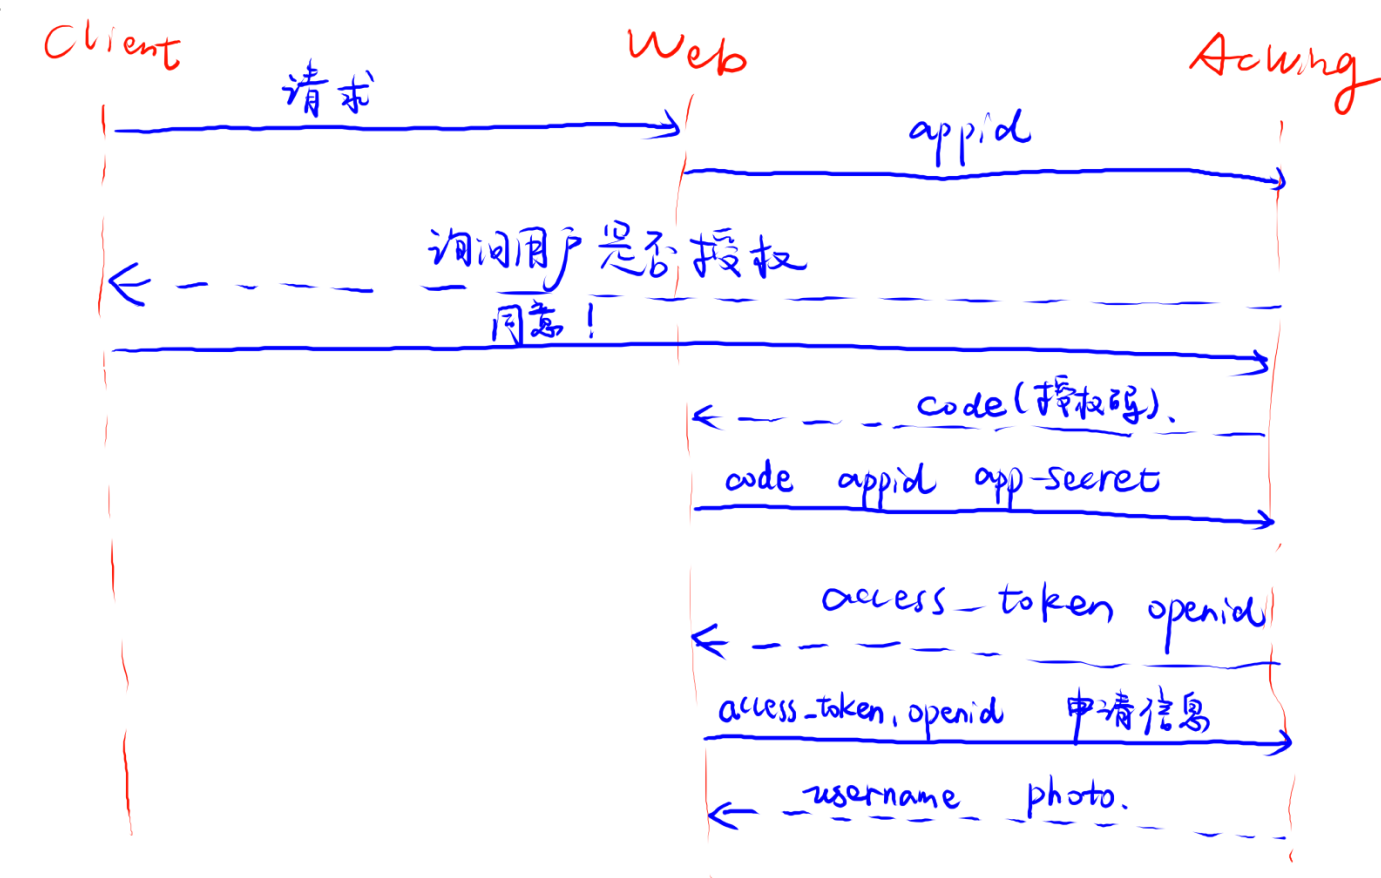 Client Web AcWing
请求
appid
询问用户是否授权
同意！
code(授权码).
code appid app-secret
access_token openid
access_token, openid 申请信息
username photo.